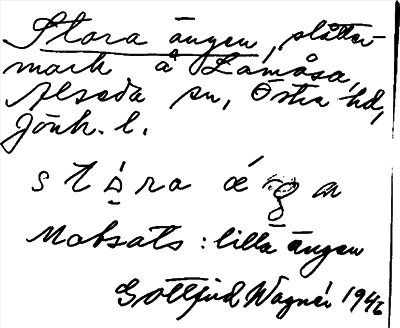 Stora ängen, slåtter-
mark å Lamåsa,
Alseda sn, Östra hd,
Jönk. l.
Motsats: lilla ängen
Gottfrid Wagnér 1942